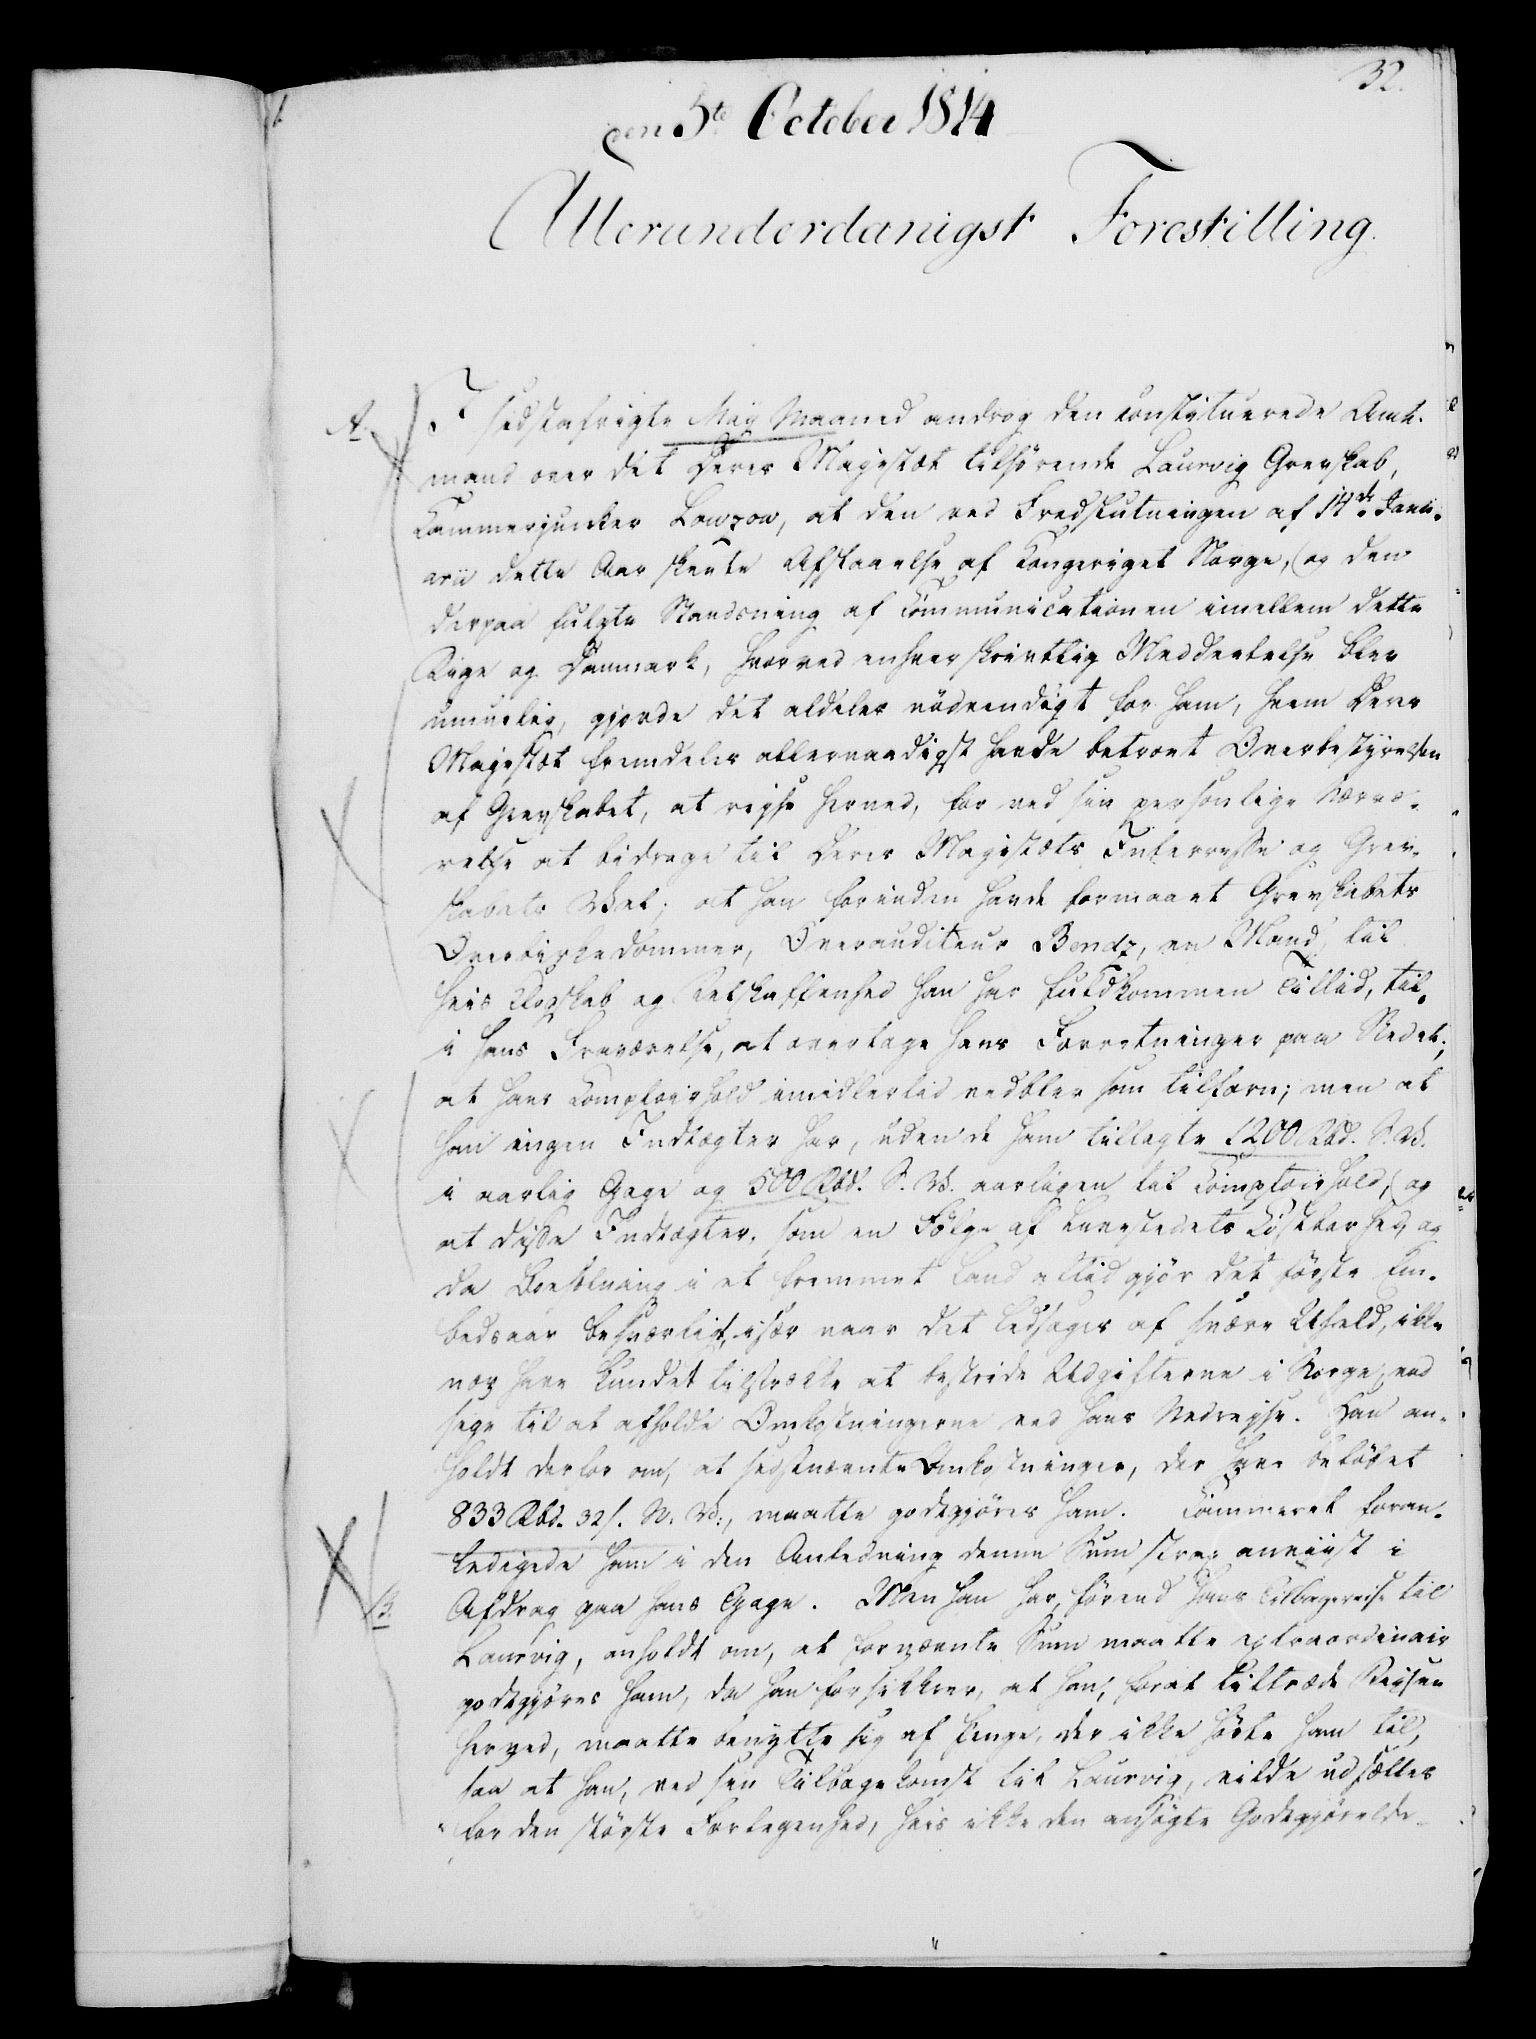 32.
den 5te October 1814
Allerunderdanigst Forestilling.
A.
I sidstafvigte May Maaned androg den constituerede Amt-
mand over det Deres Majestæt tilhørende Laurvig Grevskab,
Kammerjunker Lowzow, at den ved Fredslutningen af 14de Janu-
arii dette Aar skeete Afstaaelse af Kongeriget Norge, og den
derpaa fulgte Standsning af Communicationen imellem dette
Rige og Danmark, hvorved enhver skrivtlig Meddeelelse blev
umuelig, gjorde det aldeles nödvendigt for ham, hvem Deres
Majestæt fremdeles allernaadigst havde betroet Overbestyrelsen
af Grevskabet, at reyse herned, for ved sin personlige Nærvæ-
relse at bidrage til Deres Majestæts Interresse og Grev-
skabets Vel; at han forinden havde formaaet Grevskabets
Overbirkedommer, Overauditeur Bendz, en Mand, til
hvis Duskab og Retskaffenhed han har fuldkommen Tillid, til,
i hans Fraværelse, at overtage hans Forretninger paa Stedet;
at hans Comptoirhold imidlertid vedblev som tilforn; men at
han ingen Indtægter har, uden de ham tillagte 1200 Rbd. S. V.
i aarlig Gage og 500 Rbd. S. V. aarligen til Comptoirhold, og
at disse Indtægter, som en Fölge af Levestedets Kostbarhed, og
da Bosætning i et fremmet Land altid gjör det förste Em-
bedsaar besværligt, især naar det ledsages af svære Uheld, ikke
nær have kundet tilstrække at bestride Udgifterne i Norge, end
sige til at afholde Omkostningerne ved hans Nedreyse. Han an-
holdt derfor om, at sidstnævnte Omkostninger, der have belöbet
833 Rbd. 32 s. N. V., maatte godtgjöres ham. Kammeret foran-
ledigede ham i den Anledning denne Sum strax anviist i
B.
Afdrag paa hans Gage. Men han har, förend hans Tilbagereise til
Laurvig, anholdt om, at fornævnte Sum maatte extraordinair
godtgjöres ham, da han forsikkrer, at han, forat tiltræde Reysen
herned, maatte benytte sig af Penge, der ikke hörte ham til,
saa at han, ved sin Tilbagekomst til Laurvig, vilde udsættes
for den störste Forlegenhed, hvis ikke den ansögte Godtgjörelse